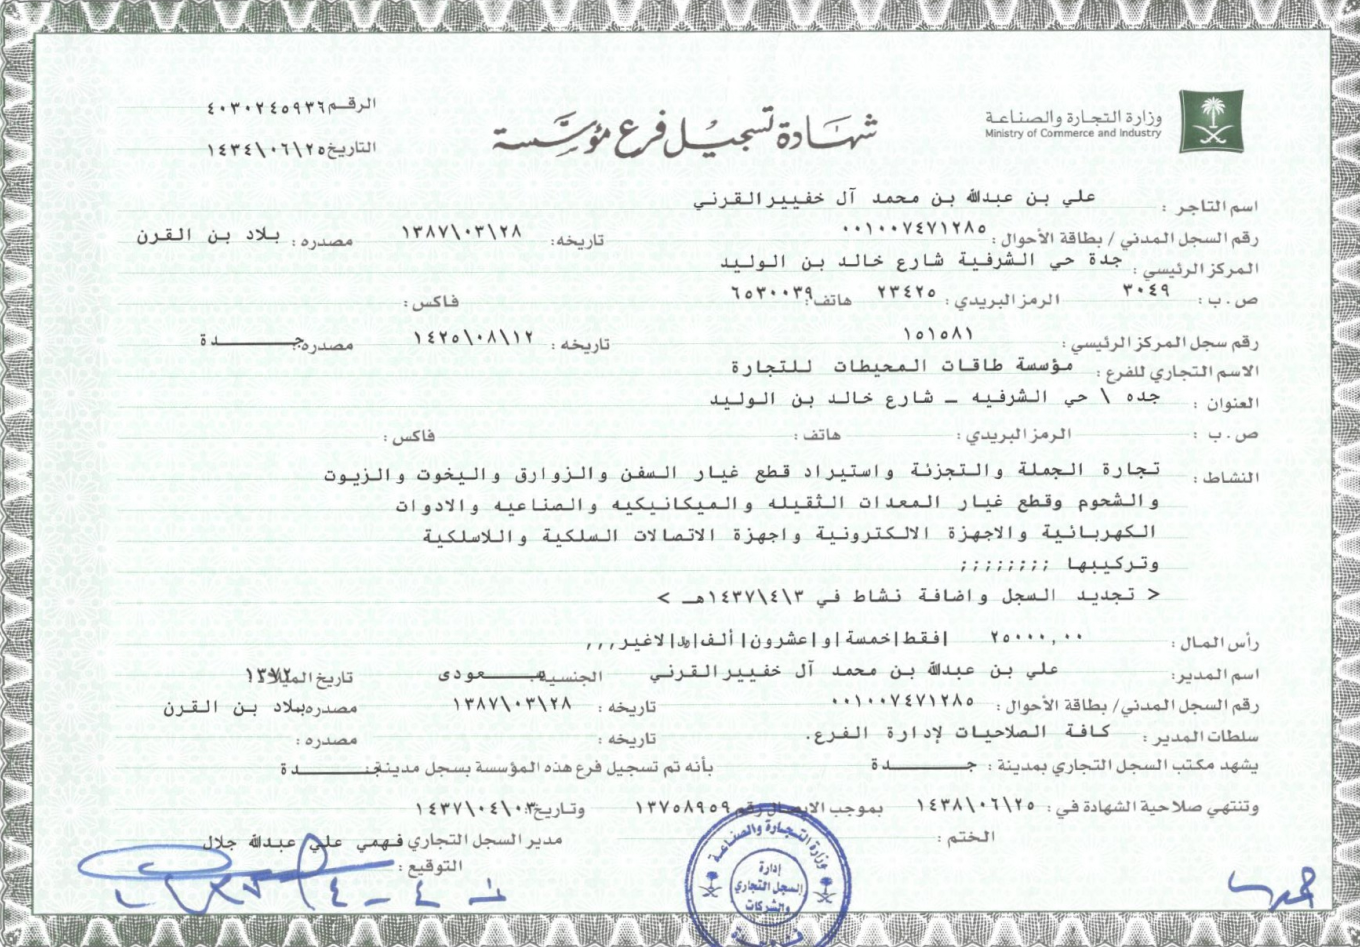 وزارة التجارة والصناعة
Ministry of Commerce and Industry
شهادة تسجيل فرع مؤسسة
الرقم ٤٠٣٠٢٤٥٩٣٦
التاريخ ١٤٣٤\٠٦\٢٥
اسم التاجر : علي بن عبدالله بن محمد آل خفيير القرني
رقم السجل المدني / بطاقة الأحوال : ٠٠١٠٠٧٤٧١٢٨٥ تاريخه : ١٣٨٧\٠٣\٢٨ مصدره : بلاد بن القرن
المركز الرئيسي : جدة حي الشرفية شارع خالد بن الوليد
ص . ب : ٣٠٤٩ الرمز البريدي : ٢٣٤٢٥ هاتف : ٦٥٣٠٠٣٩ فاكس :
رقم سجل المركز الرئيسي : ١٥١٥٨١ تاريخه : ١٤٢٥\٠٨\١٢ مصدره جـــــدة
الاسم التجاري للفرع : مؤسسة طاقات المحيطات للتجارة
العنوان : جده \ حي الشرفيه ـ شارع خالد بن الوليد
ص . ب : الرمز البريدي : هاتف : فاكس :
النشاط : تجارة الجملة والتجزئة واستيراد قطع غيار السفن والزوارق واليخوت والزيوت
والشحوم وقطع غيار المعدات الثقيله والميكانيكيه والصناعيه والادوات
الكهربائية والاجهزة الالكترونية واجهزة الاتصالات السلكية واللاسلكية
وتركيبها ;;;;;;;;
< تجديد السجل واضافة نشاط في ١٤٣٧\٤\٣هـ >
رأس المال : ٢٥٠٠٠,٠٠ |فقط|خمسة|و|عشرون|ألف| |لاغير,,,
اسم المدير : علي بن عبدالله بن محمد آل خفيير القرني الجنسية ســـعودى تاريخ الميلاد
رقم السجل المدني/ بطاقة الأحوال : ٠٠١٠٠٧٤٧١٢٨٥ تاريخه : ١٣٨٧\٠٣\٢٨ مصدره بلاد بن القرن
سلطات المدير : كافة الصلاحيات لإدارة الفرع. تاريخه : مصدره :
يشهد مكتب السجل التجاري بمدينة : جـــــدة بأنه تم تسجيل فرع هذه المؤسسة بسجل مدينة جـــــدة
وتنتهي صلاحية الشهادة في : ١٤٣٨\٠٦\٢٥ بموجب الايصال رقم ١٣٧٥٨٩٥٩ وتاريخ ١٤٣٧\٠٤\٠٣
الختم : مدير السجل التجاري فهمي علي عبدالله جلال
التوقيع :
وزارة التجارة والصناعة
إدارة
السجل التجاري
والشركات